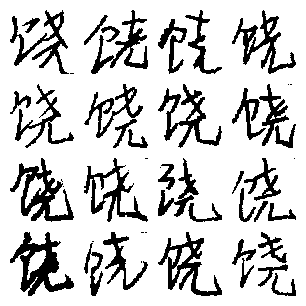 饶 饶 饶 饶
饶 饶 饶 饶
饶 饶 饶 饶
饶 饶 饶 饶